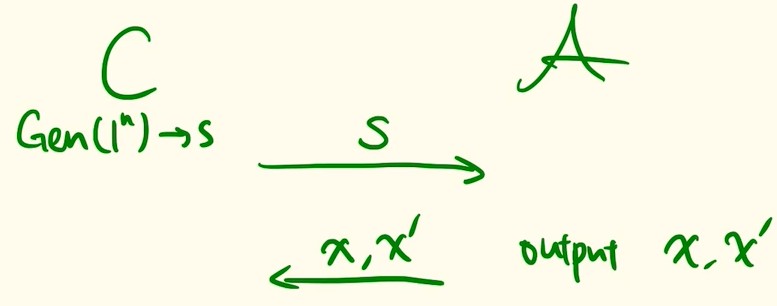 C A
Gen(1ⁿ)→s
s
x, x'
output x, x'